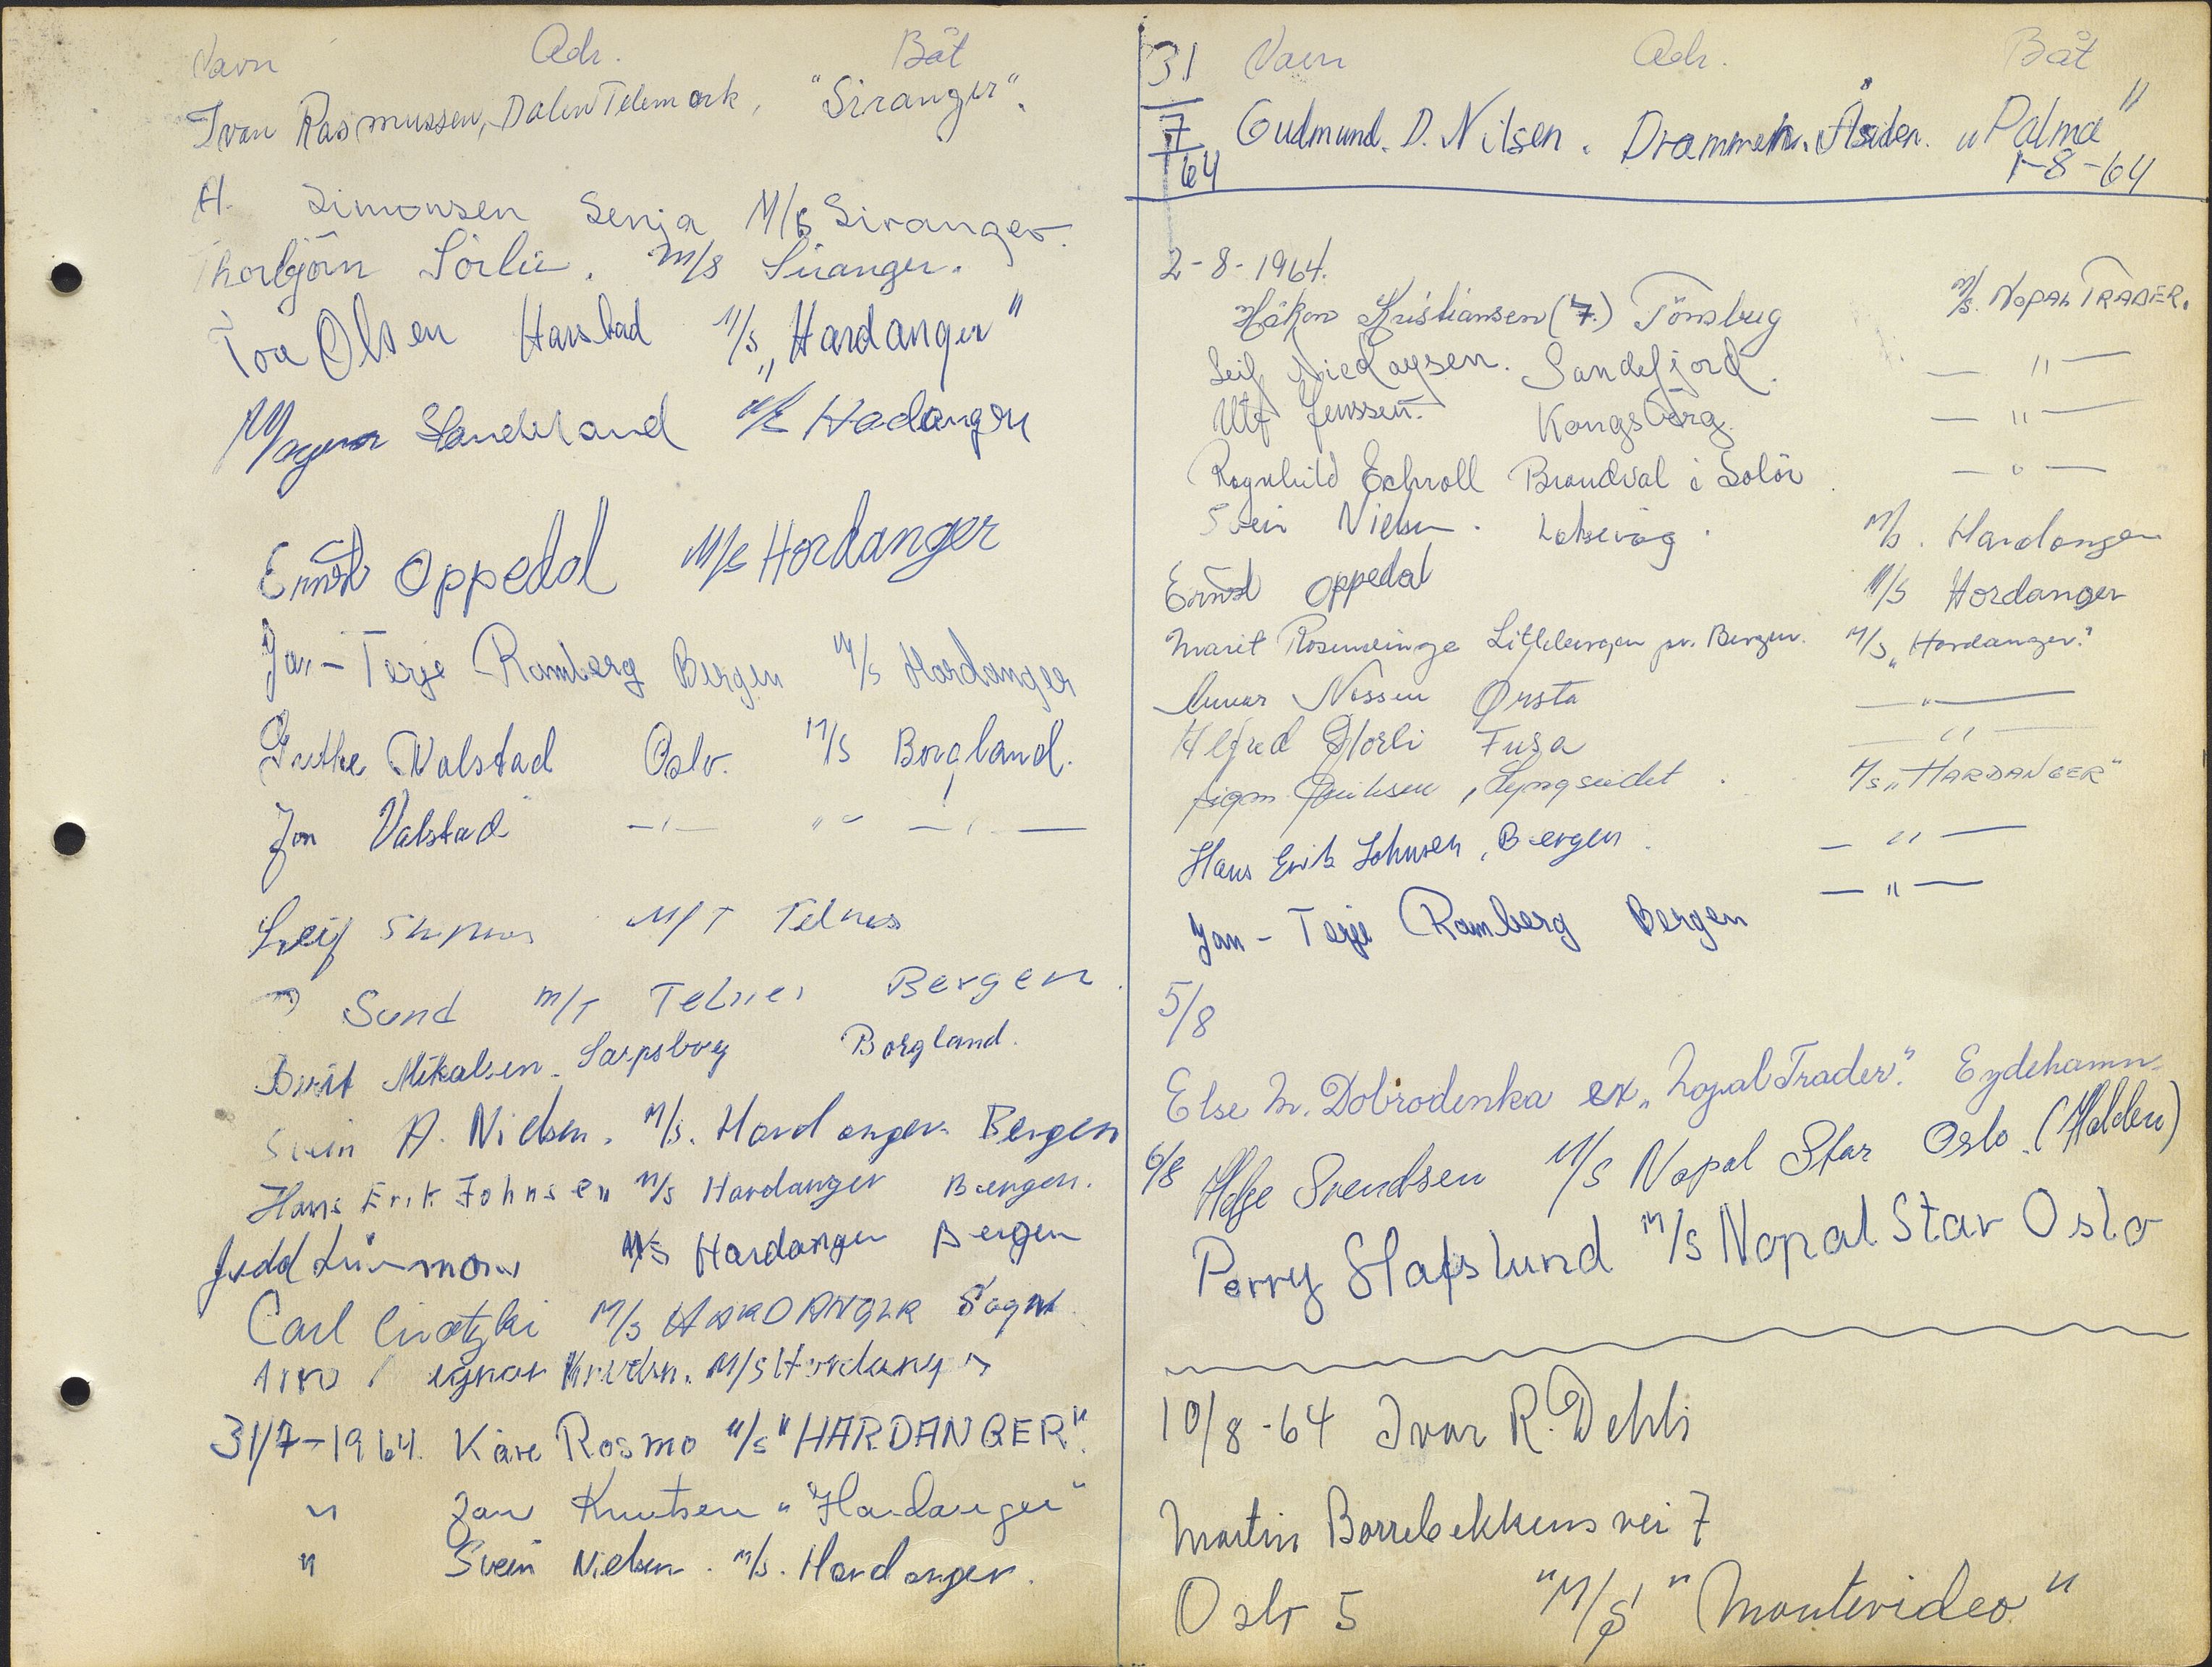 Navn Adr. Båt
Ivan Rasmussen, Dalen Telemark, "Siranger".
A. Simonsen Senja M/S Siranger.
Thorbjörn Sörlie. M/S Siranger.
Olsen Harstad M/S „Hardanger"
Magnar Sandeland M/S Hadanger
Ernst Oppedal M/S Hordanger
Jan-Terje Ramberg Bergen M/S Hardanger
Grethe Valstad Oslo. M/S Borgland.
Jon Valstad —"— "" —"—
Leif M/T Telnes
Sund M/T Telnes Bergen.
Berit Mikalsen. Sarpsborg Borgland.
Svein A. Nielsen. M/S. Hardanger. Bergen
Hans Erik Johnsen M/S Hardanger Bergen.
M/S Hardanger Bergen
Carl M/S HARDANGER Sogn.
M/S Hardanger
31/7-1964. Kåre Rosmo M/S "HARDANGER".
" Jan Knutsen "Hardanger"
" Svein Nielsen. M/S. Hardanger.
31/7 64 Navn Adr. Båt
Gudmund. D. Nilsen. Drammen. Åsiden. „Palma"
1-8-64
2-8-1964.
Håkon Kristiansen (7.) Tönsberg M/S. NOPAL TRADER.
Leif Sandefjord. — " —
Ulf Jenssen. Kongsberg. — " —
Ragnhild Brandval i Solör. — " —
Svein Nielsen. Laksevåg. M/S. Hardanger
Ernst Oppedal M/S Hordanger
Marit Rosendinge Litlebergen pr. Bergen. M/S „Hardanger"
Nessen Ørsta — " —
Alfred Storli Fusa — " —
Lyngseidet. M/S „HARDANGER"
Hans Erik Johnsen, Bergen. — " —
Jan-Terje Ramberg Bergen — " —
5/8
Else M. Dobrodenka ex „Nopal Trader". Eydehamn.
6/8 Helge Svendsen M/S Nopal Star Oslo. (Halden)
Perry Slafslund M/S Nopal Star Oslo
10/8-64 Ivar R. Dehli
Martin Borrebekkens vei 7
Oslo 5 "M/S" "Montevideo"